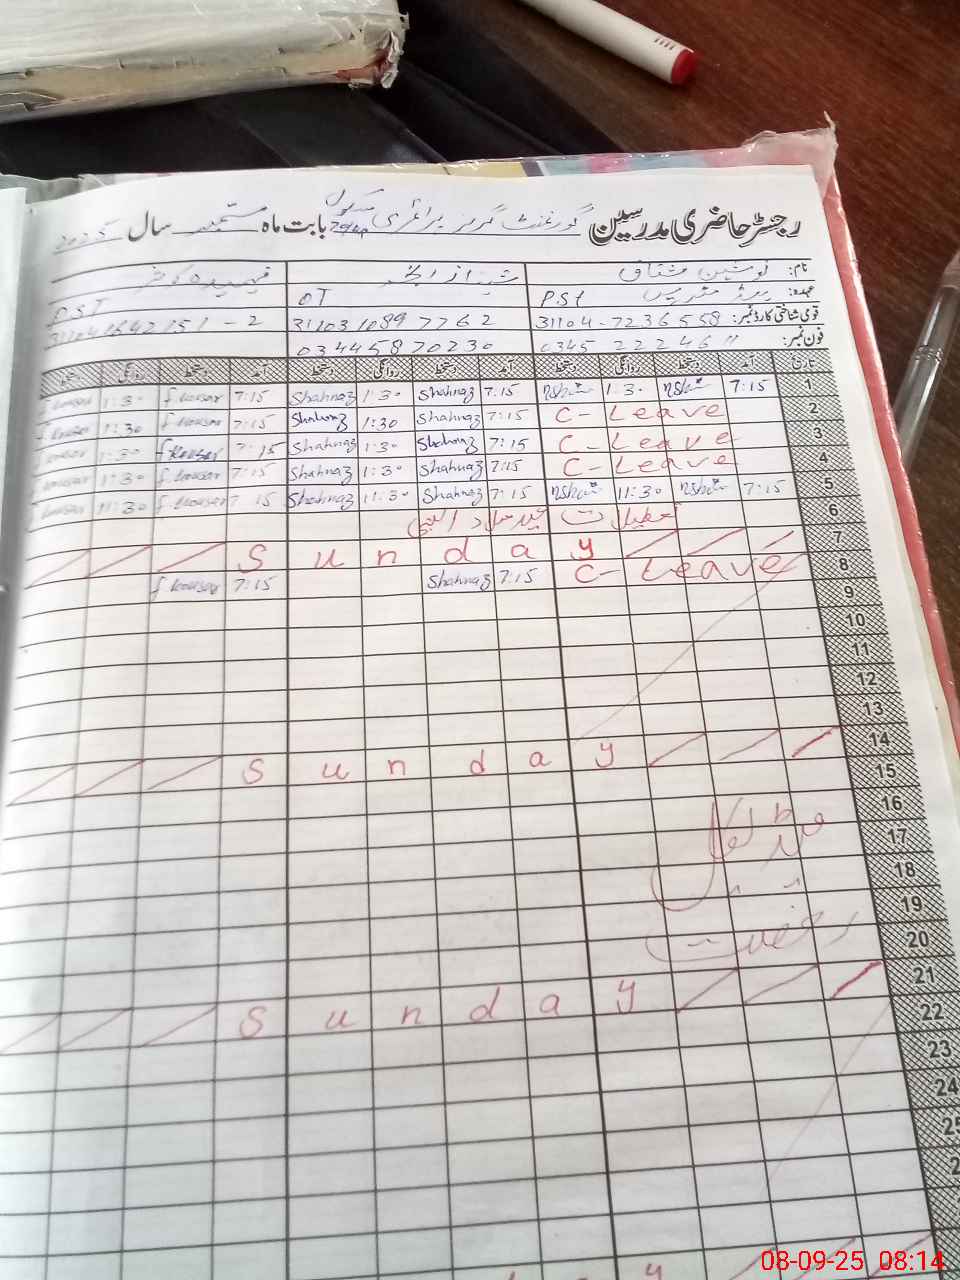 رجسٹر حاضری مدرسین گورنمنٹ گرلز پرائمری سکول بابت ماہ ستمبر سال 2025
نام: نوشین مشتاق شہناز اختر فہمیدہ کوثر
عہدہ: ہیڈ مدرس P.ST OT P.S.T
قومی شناختی کارڈ نمبر: 31104-7236558 3110310897762 311041642151-2
فون نمبر: 0345 2224611 03445870230
تاریخ آمد دستخط روانگی دستخط آمد دستخط روانگی دستخط آمد دستخط روانگی دستخط
1 7:15 1:30 7:15 Shahnaz 1:30 Shahnaz 7:15 f kousar 1:30
2 C- Leave 7:15 Shahnaz 1:30 Shahnaz 7:15 f kousar 1:30
3 C- Leave 7:15 Shahnaz 1:30 Shahnaz 7:15 f kousar 1:30
4 C- Leave 7:15 Shahnaz 1:30 Shahnaz 7:15 f kousar 1:30
5 7:15 11:30 7:15 Shahnaz 11:30 Shahnaz 7:15 f kousar 11:30
6 تعطیلات عید میلاد النبی
7 Sunday
8 C- Leave 7:15 Shahnaz 7:15 f kousar
9
10
11
12
13
14 Sunday
15
16
17
18
19
رخصت
20
21 Sunday
22
23
24
08-09-25 08:14